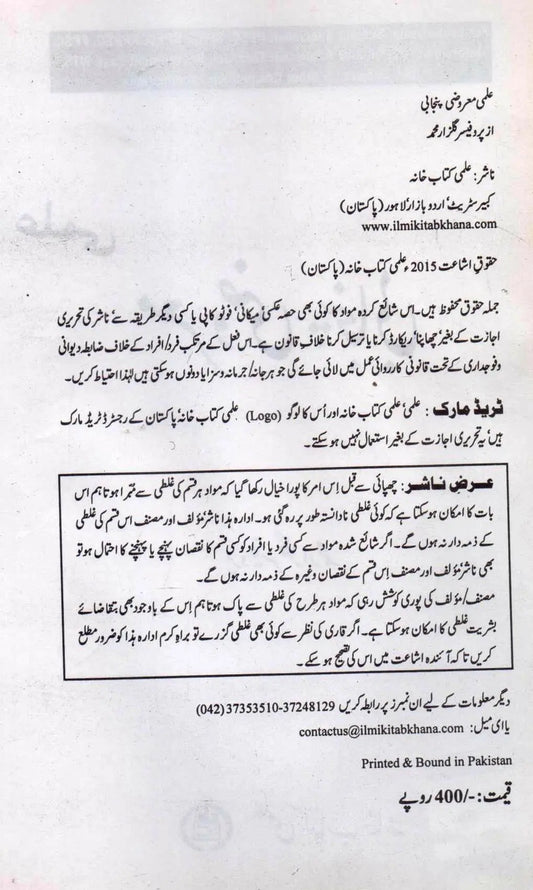 علمی معروضی پنجابی
از پروفیسر گلزار محمد
ناشر: علمی کتاب خانہ
کبیر سٹریٹ، اردو بازار، لاہور (پاکستان)
www.ilmikitabkhana.com
حقوق اشاعت 2015ء علمی کتاب خانہ (پاکستان)
جملہ حقوق محفوظ ہیں۔ اس شائع کردہ مواد کا کوئی بھی حصہ عکسی، میکانی، فوٹو کاپی یا کسی دیگر طریقہ سے، ناشر کی تحریری
اجازت کے بغیر، چھاپنا، ریکارڈ کرنا یا ترسیل کرنا خلافِ قانون ہے۔ اس فعل کے مرتکب فرد/افراد کے خلاف ضابطہ دیوانی
و فوجداری کے تحت قانونی کارروائی عمل میں لائی جائے گی جو ہرجانہ/جرمانہ و سزا یا دونوں ہو سکتی ہیں لہٰذا احتیاط کریں۔
ٹریڈ مارک: علمی، علمی کتاب خانہ اور اُس کا لوگو (Logo) علمی کتاب خانہ، پاکستان کے رجسٹرڈ ٹریڈ مارک
ہیں، یہ تحریری اجازت کے بغیر استعمال نہیں ہو سکتے۔
عرضِ ناشر: چھپائی سے قبل اِس امر کا پورا خیال رکھا گیا کہ مواد ہر قسم کی غلطی سے مُبرا ہو تاہم اس
بات کا امکان ہو سکتا ہے کہ کوئی غلطی نادانستہ طور پر رہ گئی ہو۔ ادارہ ہذا، ناشر، مؤلف اور مصنف اس قسم کی غلطی
کے ذمہ دار نہ ہوں گے۔ اگر شائع شدہ مواد سے کسی فرد یا افراد کو کسی قسم کا نقصان پہنچے یا پہنچنے کا احتمال ہو تو
بھی ناشر، مؤلف اور مصنف اِس قسم کے نقصان وغیرہ کے ذمہ دار نہ ہوں گے۔
مصنف/مؤلف کی پوری کوشش رہی کہ مواد ہر طرح کی غلطی سے پاک ہو تاہم اِس کے باوجود بھی بتقاضائے
بشریت غلطی کا امکان ہو سکتا ہے۔ اگر قاری کی نظر سے کوئی بھی غلطی گزرے تو براہِ کرم ادارہ ہذا کو ضرور مطلع
کریں تاکہ آئندہ اشاعت میں اس کی تصحیح ہو سکے۔
دیگر معلومات کے لیے ان نمبرز پر رابطہ کریں 37248129-37353510 (042)
یا ای میل: contactus@ilmikitabkhana.com
Printed & Bound in Pakistan
قیمت: -/400 روپے